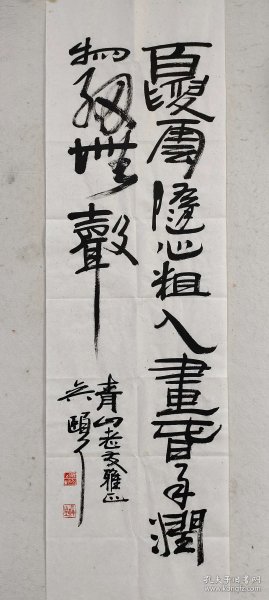 百雲隨心粗入畫春潤
物細無聲
青山老友雅正
吴頤人
孔夫子旧书网